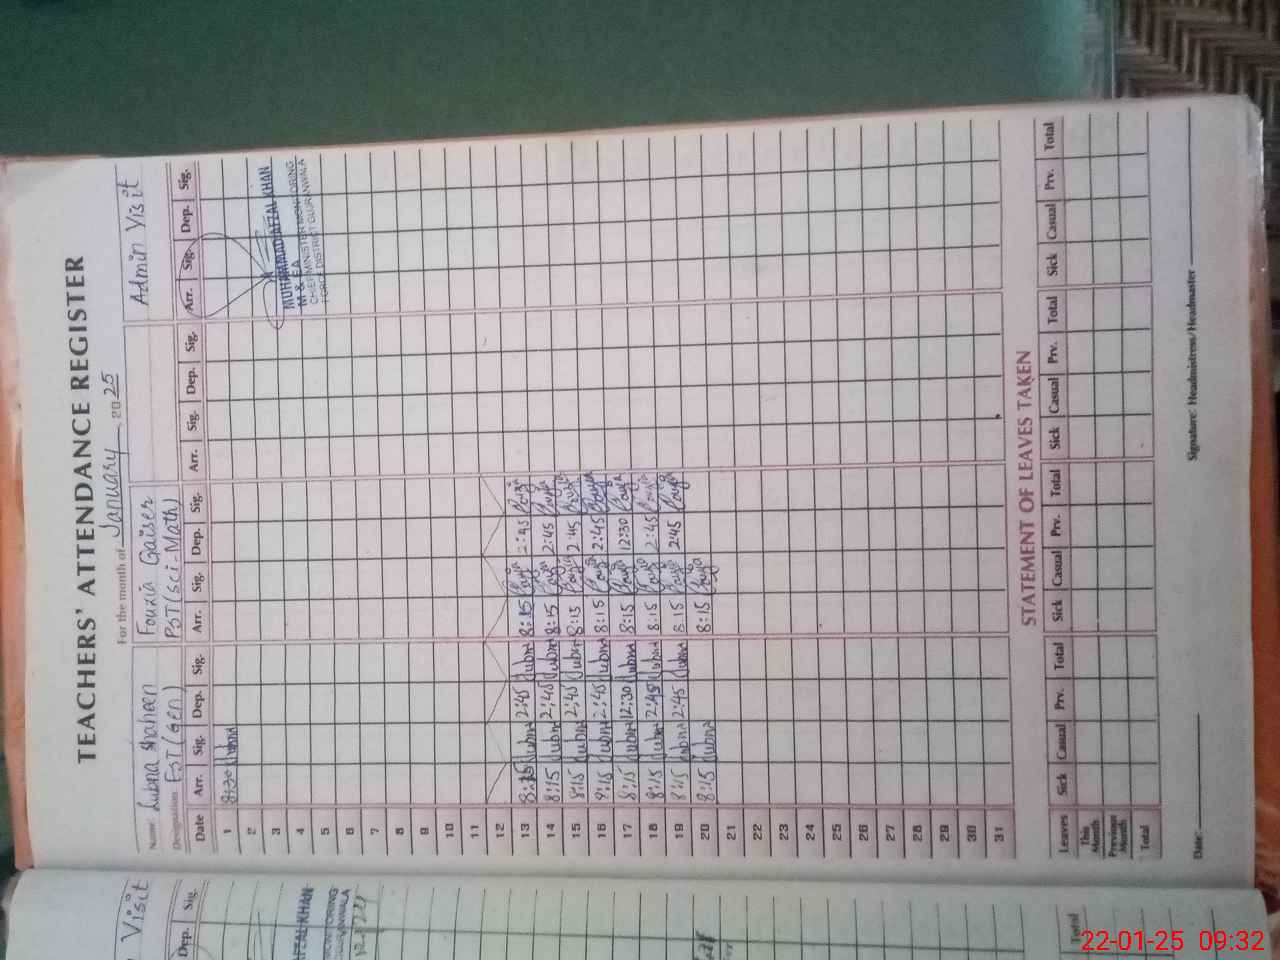 TEACHERS' ATTENDANCE REGISTER
For the month of January 2025
Name: Lubna Shaheen Fouzia Qaiser Admin Visit
Designation EST (Gen) PST (Sci-Math)
Date Arr. Sig. Dep. Sig. Arr. Sig. Dep. Sig. Arr. Sig. Dep. Sig. Arr. Sig. Dep. Sig.
1 8:30 Lubna
2
3
MUHAMMAD AFZAL KHAN
4 M & EA
CHIEF MINISTER MONITORING
5 FORCE DISTRICT GUJRANWALA
6
7
8
9
10
11
12
13 8:15 Lubna 2:45 Lubna 8:15 2:45
14 8:15 Lubna 2:45 Lubna 8:15 2:45
15 8:15 Lubna 2:45 Lubna 8:15 2:45
16 8:15 Lubna 2:45 Lubna 8:15 2:45
17 8:15 Lubna 12:30 Lubna 8:15 12:30
18 8:15 Lubna 2:45 Lubna 8:15 2:45
19 8:15 Lubna 2:45 Lubna 8:15 2:45
20 8:15 Lubna 8:15
21
22
23
24
25
26
27
28
29
30
31
STATEMENT OF LEAVES TAKEN
Leaves Sick Casual Prv. Total Sick Casual Prv. Total Sick Casual Prv. Total Sick Casual Prv. Total
This Month
Previous Month
Total
Date: Signature: Headmistress/Headmaster
Visit
Dep. Sig.
AFZAL KHAN
MONITORING
GUJRANWALA
Total
22-01-25 09:32